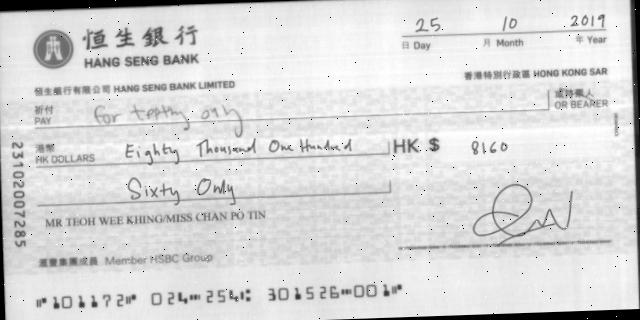 25 10 2019
恒生銀行
日 Day 月 Month 年 Year
HANG SENG BANK
恒生銀行有限公司 HANG SENG BANK LIMITED
香港特別行政區 HONG KONG SAR
祈付
PAY for testing only
或持票人
OR BEARER
港幣
HK DOLLARS Eighty Thousand One Hundred HK $ 8160
Sixty Only
MR TEOH WEE KHING/MISS CHAN PO TIN
滙豐集團成員 Member HSBC Group
23102007285
⑈101172⑈ 024⑉254⑆ 301526⑉001⑈